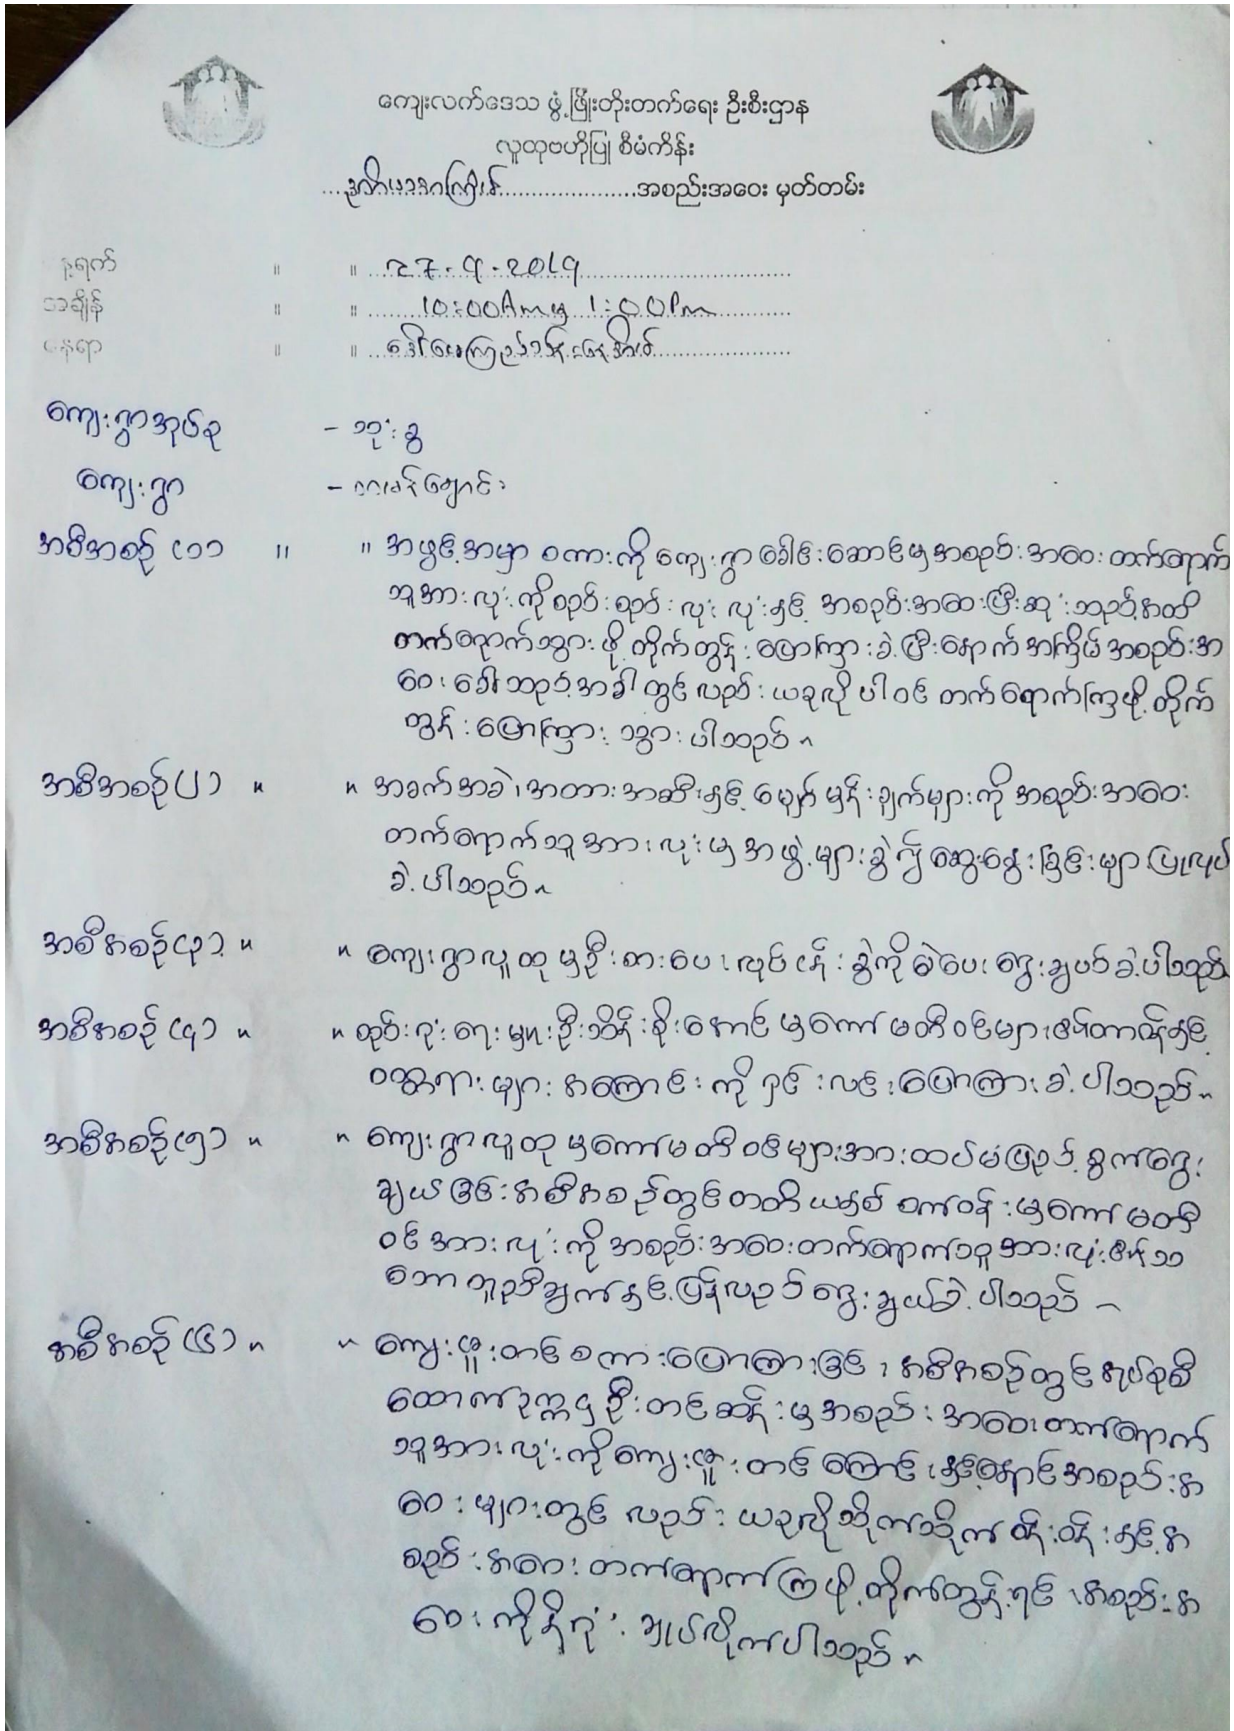 ကျေးလက်ဒေသ ဖွံ့ဖြိုးတိုးတက်ရေး ဦးစီးဌာန
လူထုဗဟိုပြု စီမံကိန်း
ဒုတိယအကြိမ် အစည်းအဝေး မှတ်တမ်း
နေ့ရက် " " 27.9.2019
အချိန် " " 10:00Am မှ 1:00Pm
နေရာ " "
ကျေးရွာအုပ်စု - သုံးခွ
ကျေးရွာ
အစီအစဉ် (၁) " " အဖွင့်အမှာ စကားကို ကျေးရွာ ခေါင်းဆောင်မှ အစည်းအဝေး တက်ရောက်
သူအားလုံးကို စည်းစည်းလုံးလုံးနှင့် အစည်းအဝေးပြီးဆုံးသည့်အထိ
တက်ရောက်သွားဖို့ တိုက်တွန်းပြောကြားခဲ့ပြီးနောက်အကြိမ် အစည်းအ
ဝေးခေါ်သည့်အခါတွင်လည်း ယခုလိုပါဝင်တက်ရောက်ကြဖို့ တိုက်
တွန်းပြောကြားသွားပါသည်။
အစီအစဉ် (၂) " " အခက်အခဲ၊ အတားအဆီးနှင့် မျှော်မှန်းချက်များကို အစည်းအဝေး
တက်ရောက်သူအားလုံးမှ အဖွဲ့များခွဲ၍ ဆွေးနွေးခြင်းများ ပြုလုပ်
ခဲ့ပါသည်။
အစီအစဉ် (၃) " " ကျေးရွာလူထုမှ ဦးစားပေး လုပ်ငန်းခွဲကို မဲပေးရွေးချယ်ခဲ့ပါသည်။
အစီအစဉ် (၄) " " ထုပ်းရုံးရေးမှူး ဦးသိန်းစိုးအောင်မှ ကော်မတီဝင်များ၏ တာဝန်နှင့်
ဝတ္တရားများ အကြောင်းကို ရှင်းလင်းပြောကြားခဲ့ပါသည်။
အစီအစဉ် (၅) " " ကျေးရွာလူထုမှ ကော်မတီဝင်များအား ထပ်မံဖြည့်စွက်ရွေး
ချယ်ခြင်းအစီအစဉ်တွင် တတိယနှစ် စက်ဝန်းမှ ကော်မတီ
ဝင်အားလုံးကို အစည်းအဝေးတက်ရောက်သူအားလုံး၏ သ
ဘောတူညီချက်နှင့် ပြန်လည်ရွေးချယ်ခဲ့ပါသည်။
အစီအစဉ် (၆) " " ကျေးဇူးတင်စကားပြောကြားခြင်း အစီအစဉ်တွင် အုပ်စုစီ
ထောက်ဥက္ကဌ ဦးတင်ဆန်းမှ အစည်းအဝေးတက်ရောက်
သူအားလုံးကို ကျေးဇူးတင်ကြောင်းနှင့် နောင်အစည်းအ
ဝေးများတွင်လည်း ယခုလိုသိုက်သိုက်ဝန်းဝန်းနှင့် အ
စည်းအဝေးတက်ရောက်ကြဖို့ တိုက်တွန်းရင်း အစည်းအ
ဝေးကိုရုပ်သိမ်းလိုက်ပါသည်။